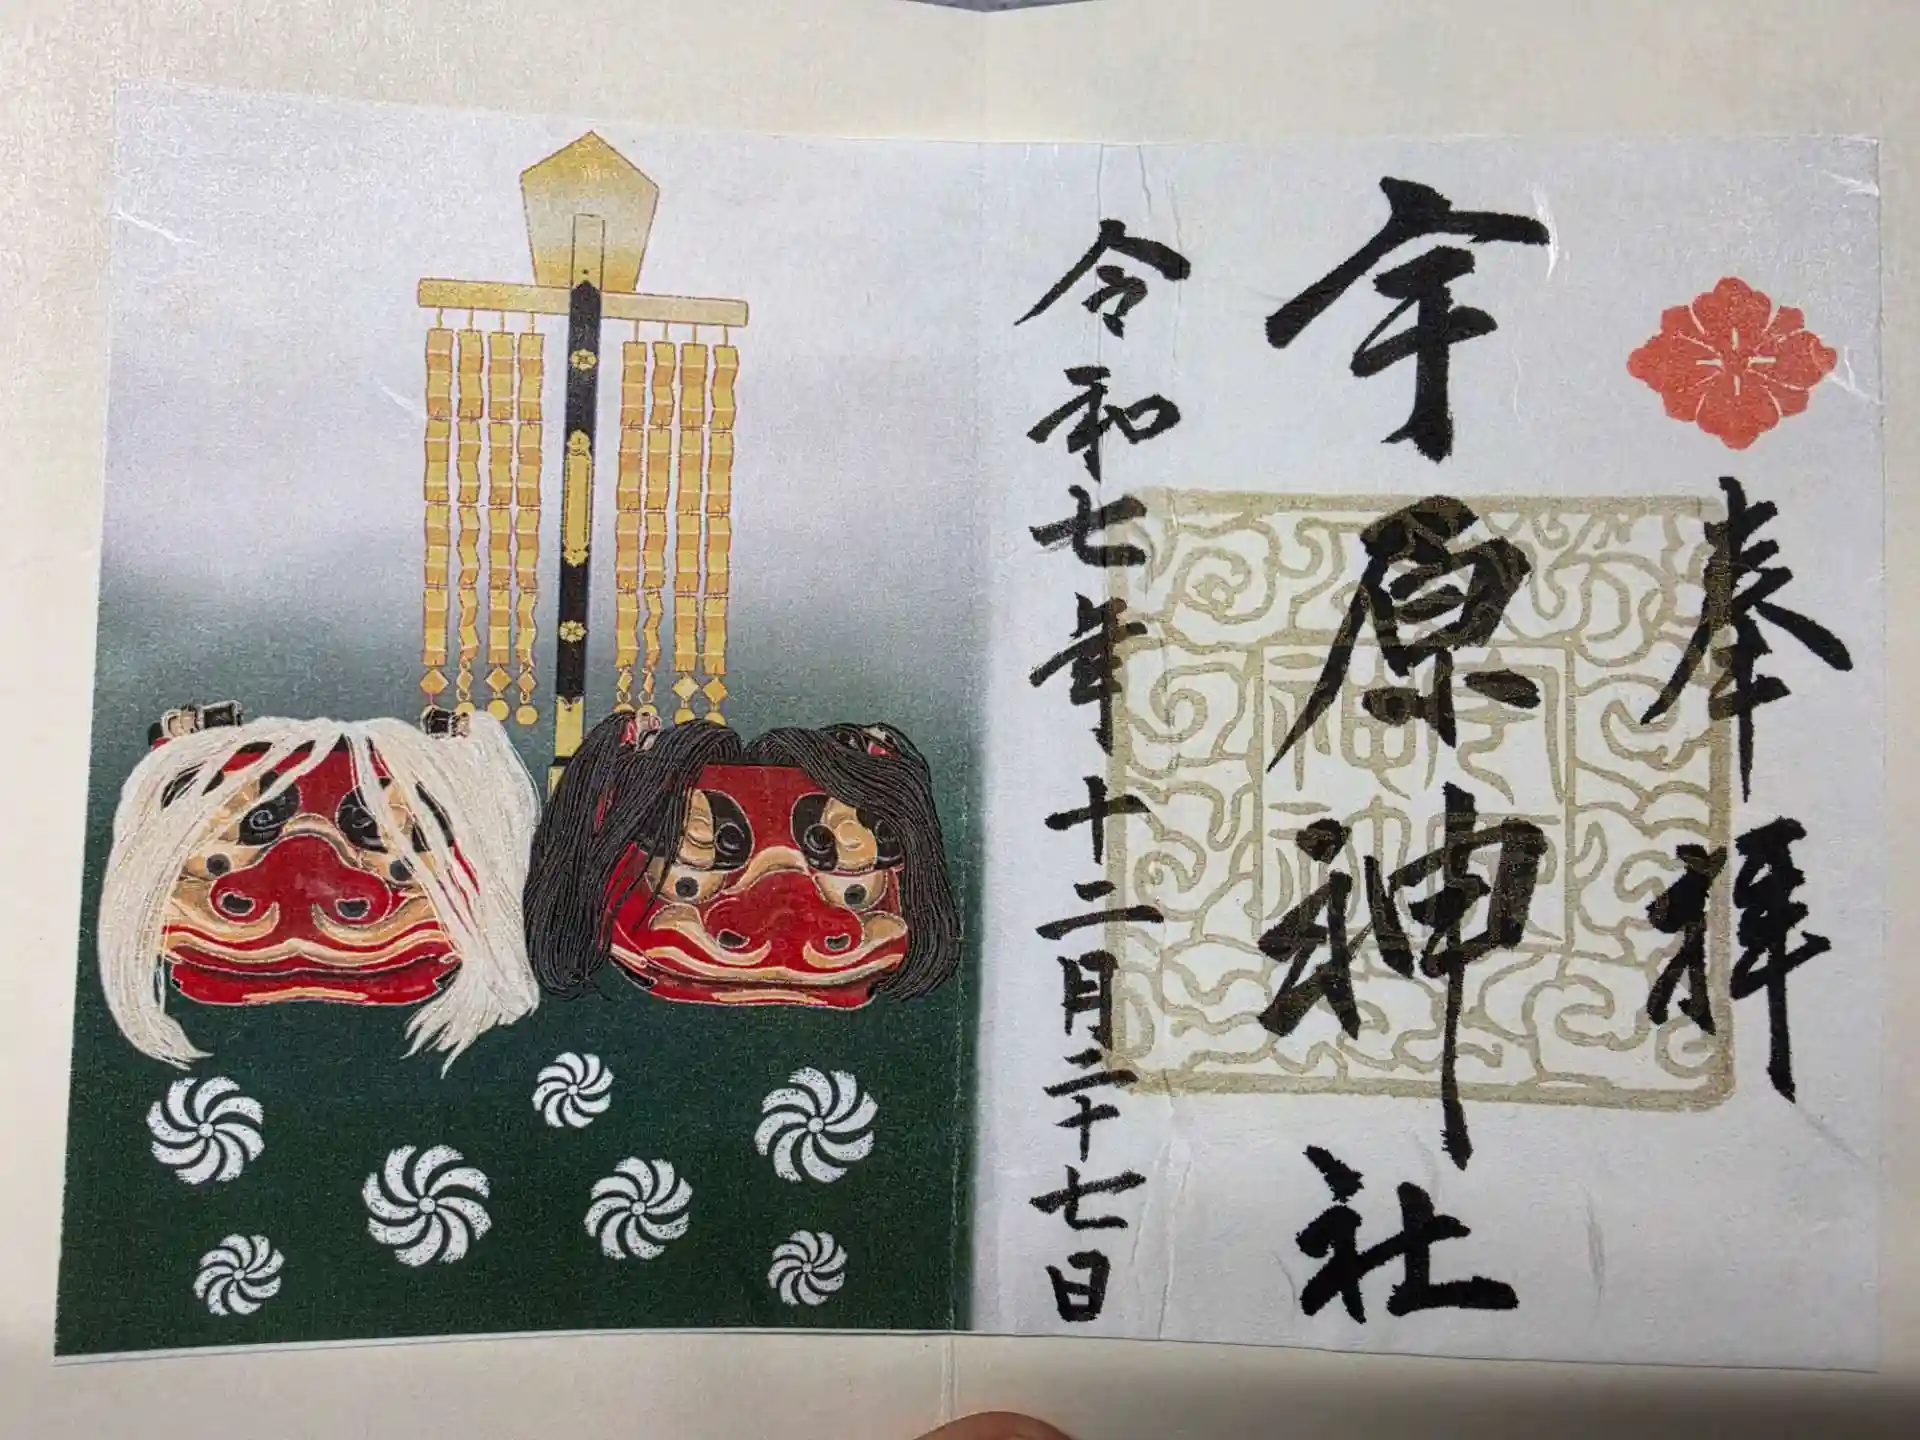 奉拝
宇原神社
令和七年十二月二十七日